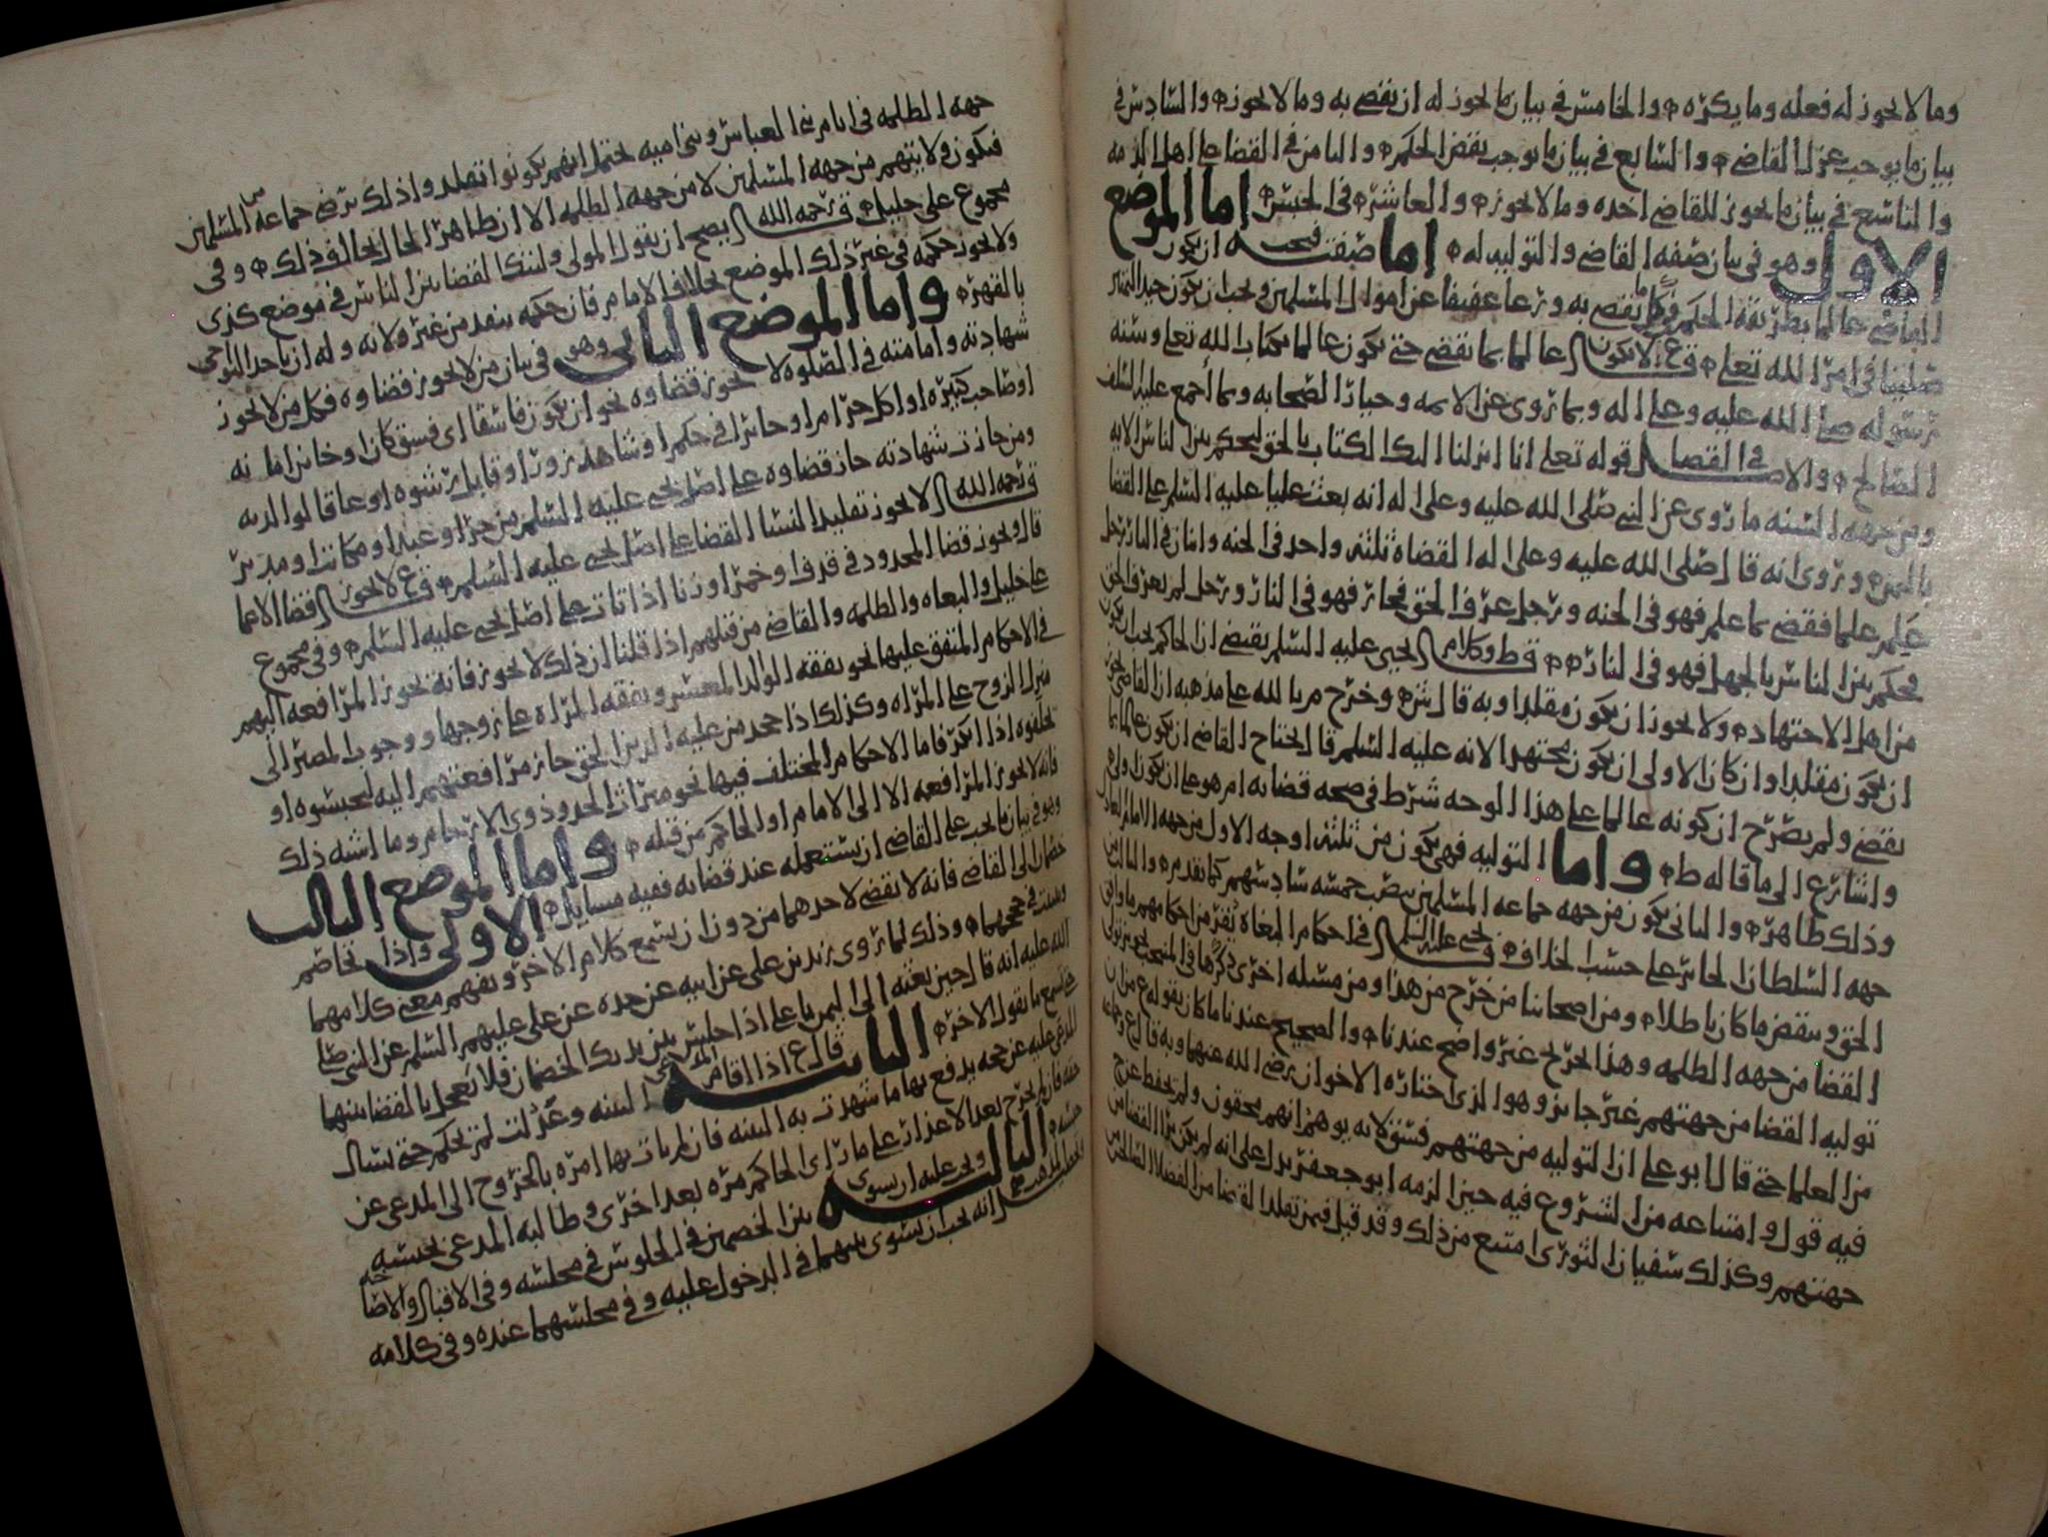 وما لا يجوز له فعله وما يكره والخامس في بيان ما يجوز له ان يقضي به وما لا يجوز والسادس في
بيان ما يوجب عزل القاضي والسابع في بيان ما يوجب نقض الحكم والثامن في القضا على اهل الذمه
والتاسع في بيان ما يجوز للقاضي اخذه وما لا يجوز والعاشر في الحبس اما الموضع
الاول وهو في بيان صفه القاضي والتوليه له اما صفته فيجب ان يكون
القاضي عالما بطريقة الحكم فيما يقضي به ورعا عفيفا عن اموال المسلمين ويجب ان يكون جيد التمييز
صليبا في امر الله تعلى ولا يكون عالما بما يقضي حتى يكون عالما بكتاب الله تعلى وسنه
رسوله صلى الله عليه وعلى اله وبما روي عن الائمه وخيار الصحابه وبما اجمع عليه السلف
الصالح والاصل في القضا قوله تعلى انا انزلنا اليك الكتاب بالحق لتحكم بين الناس الايه
ومن جهه السنه ما روي عن النبي صلى الله عليه وعلى اله انه بعث عليا عليه السلم على القضا
باليمن وروي انه قال صلى الله عليه وعلى اله القضاة ثلثه واحد في الجنه واثنان في النار رجل
علم علما فقضى بما علم فهو في الجنه ورجل عرف الحق فجار فهو في النار ورجل لم يعرف الحق
فحكم بين الناس بالجهل فهو في النار ط وكلام يحيى عليه السلم يقتضي ان الحاكم يجب ان يكون
من اهل الاجتهاد ولا يجوز ان يكون مقلدا وبه قال ش وخرج م بالله على مذهبه ان القاضي يجوز
ان يكون مقلدا وان كان الاولى ان يكون مجتهدا لانه عليه السلم قال يحتاج القاضي ان يكون عالما بما
يقضي ولم يصرح ان كونه عالما على هذا الوجه شرط في صحه قضائه ام هو على ان يكون اولى
واشار ع الى ما قاله ط واما التوليه فهي تكون من ثلثه اوجه الاول من جهه الامام العادل
وذلك ظاهر والثاني يكون من جهه جماعه المسلمين بنصب خمسه سادسهم كما تقدم والثالث من
جهه السلطان الجائر على حسب الخلاف يحيى عليه السلم في احكام البغاة يقر من احكامهم ما وافق
الحق وينقض ما كان باطلا ومن اصحابنا من خرج من هذا ومن مسئله اخرى ذكرها في المنتخب تجويز تولي
القضا من جهه الظلمه وهذا التخريج غير واضح عندنا والصحيح عندنا ما كان يقوله ع من ان
توليه القضا من جهتهم غير جائز وهو الذي اختاره الاخوان رضي الله عنهما وبه قال
من العلما حتى قال ابو علي ان التوليه من جهتهم فسق لانه يوهم انهم محقون ولم يحفظ عن ح
فيه قول وامتناعه من الشروع فيه حين الزمه ابو جعفر يدل على انه لم يكن يرا القضا من
جهتهم وكذلك سفيان الثوري امتنع من ذلك وقد قيل فيمن تقلد القضا من الفضلا الصالحين
جهه الظلمه في ايام بني العباس وبني اميه يحتمل انهم يكونوا تقلدوا ذلك برضى جماعه من المسلمين
فيكون ولايتهم من جهه المسلمين لا من جهه الظلمه الا ان ظاهر الحال يخالف ذلك وفي
مجموع علي خليل رحمه الله يصح ان يقول المولي وليتك القضا بين الناس في موضع كذي
ولا يجوز حكمه في غير ذلك الموضع بخلاف الامام فان حكمه ينفذ من غير ولايه وله ان ياخذ النواحي
بالقهر واما الموضع الثاني وهو في بيان من لا يجوز قضاوه فكل من لا يجوز
شهادته وامامته في الصلوه لا يجوز قضاوه نحو ان يكون فاسقا اي فسق كان او خائن امانه
او صاحب كبيره او اكل حرام او حائرا في حكم او شاهد زور او قابل رشوه او عاقا لوالديه
ومن جازت شهادته جاز قضاوه على اصل يحيى عليه السلم من حر او عبد او مكاتب او مدبر
رحمه الله لا يجوز تقليد النسا القضا على اصل يحيى عليه السلم ع لا يجوز قضا الاعما
قال ويجوز قضا المحدود في قذف او خمر او زنا اذا تاب على اصل يحيى عليه السلم وفي مجموع
علي خليل والبغاه والظلمه والقاضي من قبلهم اذا قلنا ان ذلك لا يجوز فانه تجوز المرافعه اليهم
في الاحكام المتفق عليها نحو نفقه الوالد المعسر ونفقه المراه على زوجها ووجوب المصير الى
منزل الزوج على المراه وكذلك اذا جحد من عليه الدين الحق جاز مرافعتهم اليه ليحبسوه او
يحلفوه اذا انكر فاما الاحكام المختلف فيها نحو ميراث الجد وذوي الارحام وما اشبه ذلك
فانه لا يجوز المرافعه الا الى الامام او الحاكم من قبله واما الموضع الثالث
وهو في بيان ما يجب على القاضي ان يستعمله عند قضائه ففيه مسايل الاولى واذا تخاصم
خصمان الى القاضي فانه لا يقضي لاحدهما من دون ان يسمع كلام الاخر ويفهم معنى كلامهما
ويتثبت في حججهما وذلك لما روي زيد بن علي عن ابيه عن جده عن علي عليهم السلم عن النبي صلى
الله عليه انه قال حين بعثه الى اليمن يا علي اذا جلس بين يديك الخصمان فلا تعجل بالقضا بينهما
حتى تسمع ما يقول الاخر الثانيه قال ع اذا اقام المدعي البينه وعدلت لم يحكم حتى يسال
المدعى عليه عن حجه يدفع بها ما شهدت به البينه فان لم يات بها امره بالخروج الى المدعي عن
حقه فان لم يخرج بعد الاعذار على ما راى الحاكم مره بعد اخرى وطالبه المدعي بحبسه
حبسه الثالثه ويجب عليه ان يسوي بين الخصمين في الجلوس في مجلسه وفي الاقبال والاصا
انه يجب ان يسوي بينهما في الدخول عليه وفي مجلسهما عنده وفي كلامه